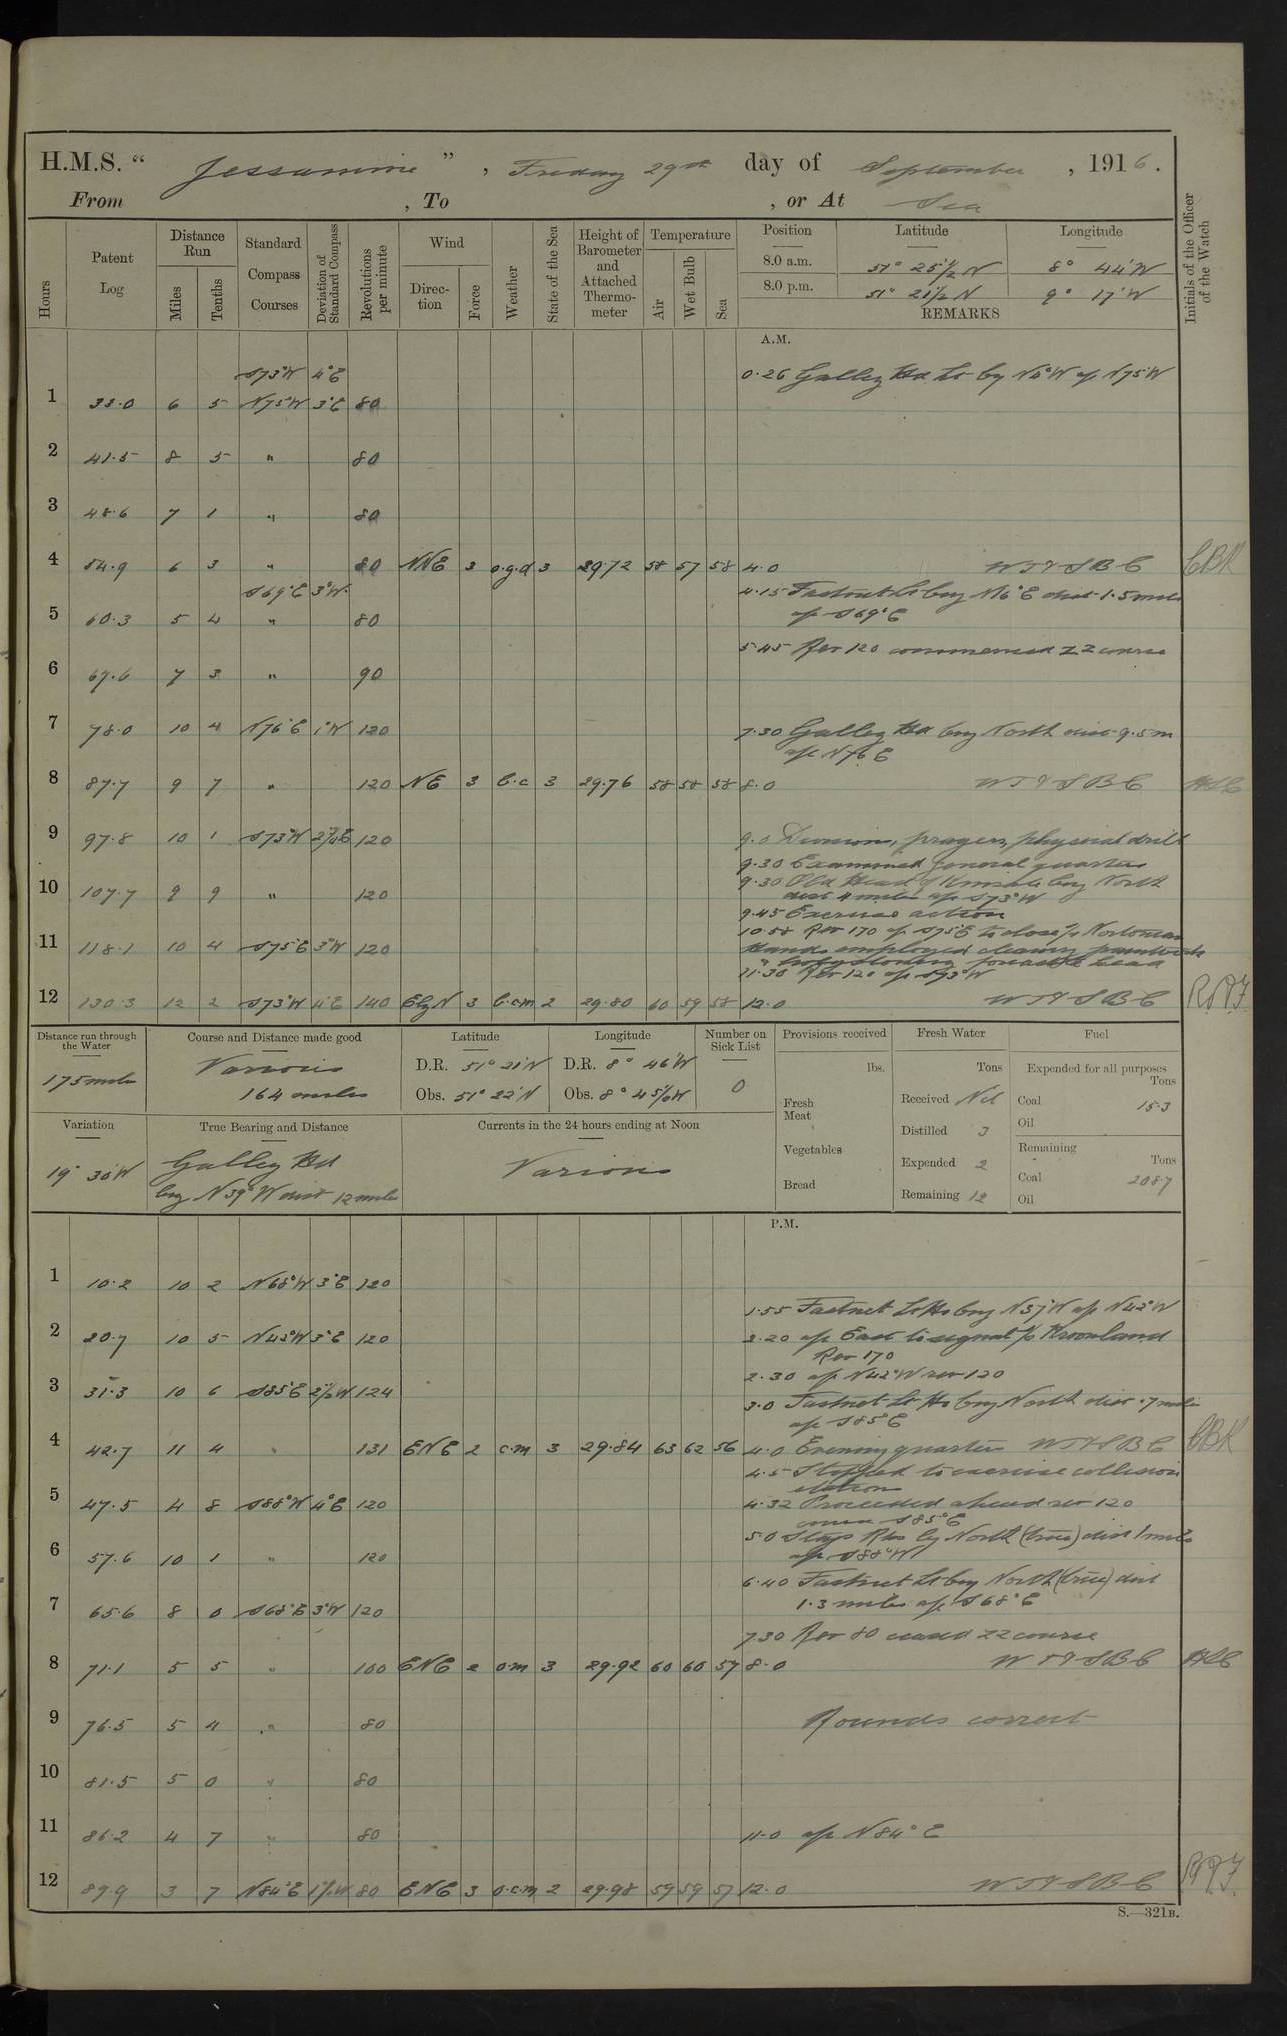 H.M.S. “ Jessamine ” , Friday 29th day of September , 1916.
From , To , or At Sea
Hours Patent Log Distance Run Miles Tenths Standard Compass Courses Deviation of Standard Compass Revolutions per minute Wind Direction Force Weather State of the Sea Height of Barometer and Attached Thermometer Temperature Air Wet Bulb Sea Position Latitude Longitude Initials of the Officer of the Watch
8.0 a.m. 51° 25½ N 8° 44' W
8.0 p.m. 51° 21½ N 9° 17' W
REMARKS
A.M.
S73°W 4°E 0.26 Galley Hd Lt by N4°W a/c N75W
1 33.0 6 5 N75°W 3°E 80
2 41.5 8 5 " 80
3 48.6 7 1 " 80
4 54.9 6 3 " 80 NNE 3 o.g.d 3 29.72 58 57 58 4.0 CBK
S69°E 3°W 4.15 Fastnet Lt brg N16°E dist 1.5 miles
5 60.3 5 4 " 80 a/c S69°E
5.45 Rev 120 commenced ZZ course
6 67.6 7 3 " 90
7 78.0 10 4 N76°E 1°W 120 7.30 Galley Hd brg North dist 9.5 m
a/c N76E
8 87.7 9 7 " 120 NE 3 b.c 3 29.76 58 58 58 8.0
9 97.8 10 1 S73°W 120 9.0 Divisions, prayers, physical drill
9.30 Examined general quarters
9.30 Old Head of Kinsale brg North
10 107.7 9 9 " 120 dist 4 miles a/c S73°W
9.45 Exercise action
10.58 Rev 170 a/c S75°E to close s/s
11 118.1 10 4 S75°E 3°W 120 Hands employed cleaning paintwork
11.30 Rev 120 a/c S73°W
12 130.3 12 2 S73°W 4°E 140 EbyN 3 b.cm 2 29.80 60 59 58 12.0
Distance run through the Water Course and Distance made good Latitude Longitude Number on Sick List Provisions received Fresh Water Fuel
175 miles Various D.R. 51° 21' N D.R. 8° 46' W 0 lbs. Tons Expended for all purposes Tons
164 miles Obs. 51° 22' N Obs. 8° 45½ W Fresh Meat Received Nil Coal 15.3
Oil
Variation True Bearing and Distance Currents in the 24 hours ending at Noon Distilled 3
19° 30' W Galley Hd Various Vegetables Expended 2 Remaining Tons
brg N39°W dist 12 miles Bread Remaining 12 Coal 208.7
Oil
P.M.
1 10.2 10 2 N68°W 3°E 120
1.55 Fastnet Lt Ho brg N37°W a/c N42°W
2 20.7 10 5 N42°W 3°E 120 2.20 a/c East to signal s/s Kroonland
Rev 170
2.30 a/c N42°W rev 120
3 31.3 10 6 S85°E 2½W 124 3.0 Fastnet Lt Ho brg North dist .7 miles
a/c S85°E
4 42.7 11 4 " 131 ENE 2 c.m 3 29.84 63 62 56 4.0 Evening quarters CBK
4.5 Stopped to exercise collision
stations
5 47.5 4 8 S88°W 4°E 120 4.32 Proceeded ahead rev 120
course S85°E
5.0 Stags Rks by North (true) dist 1 mile
6 57.6 10 1 " 120 a/c S88°W
6.40 Fastnet Lt brg North (true) dist
7 65.6 8 0 S68°E 3°W 120 1.3 miles a/c S68°E
7.30 Rev 80 ceased ZZ course
8 71.1 5 5 " 100 ENE 2 o.m 3 29.92 60 60 57 8.0
9 76.5 5 4 " 80 Rounds correct
10 81.5 5 0 " 80
11 86.2 4 7 " 80 11.0 a/c N84°E
12 89.9 3 7 N84°E 1½W 80 ENE 3 o.c.m 2 29.98 59 59 57 12.0
S.—321B.